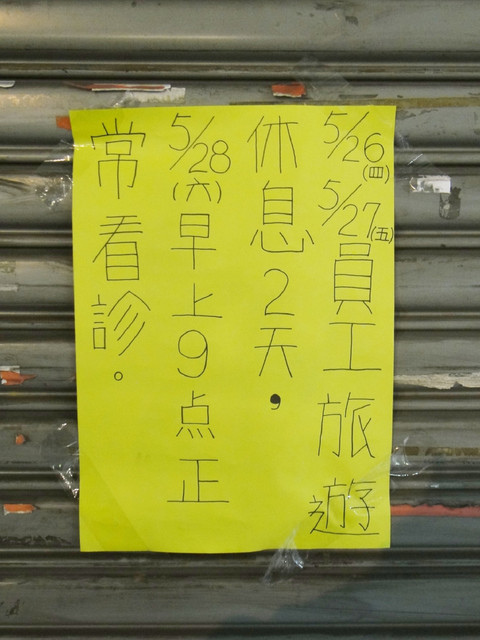 5/26(四)5/27(五)員工旅遊
休息2天，
5/28(六)早上9点正
常看診。